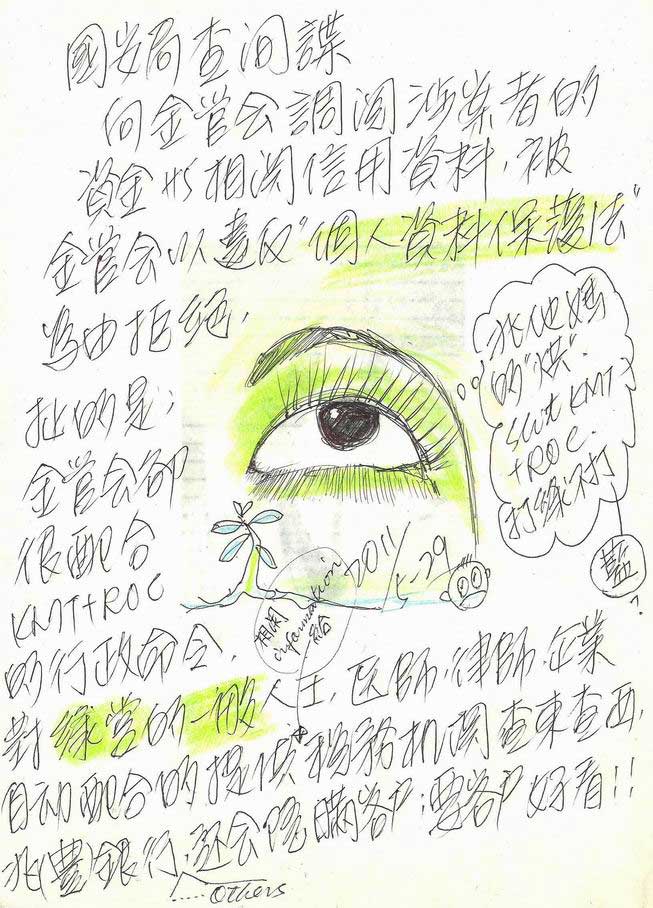 國安局查间諜
向金管会調閱涉案者的
資金HS相関信用資料，被
金管会以違反"個人資料保護法"
為由拒絕，
扯的是；
金管会卻
很配合
KMT+ROC
的行政命令，
對綠营的一般人士，医師，律師，企業
自动配合的提供税務机関查東查西，
兆(豐)銀行，还会隐瞞客户；要客户好看!!
.....Others
兆他媽
的"洪"．
SWt KMT
+ROC．
打綠不打
藍
?
2011/5-29
相関
information
給